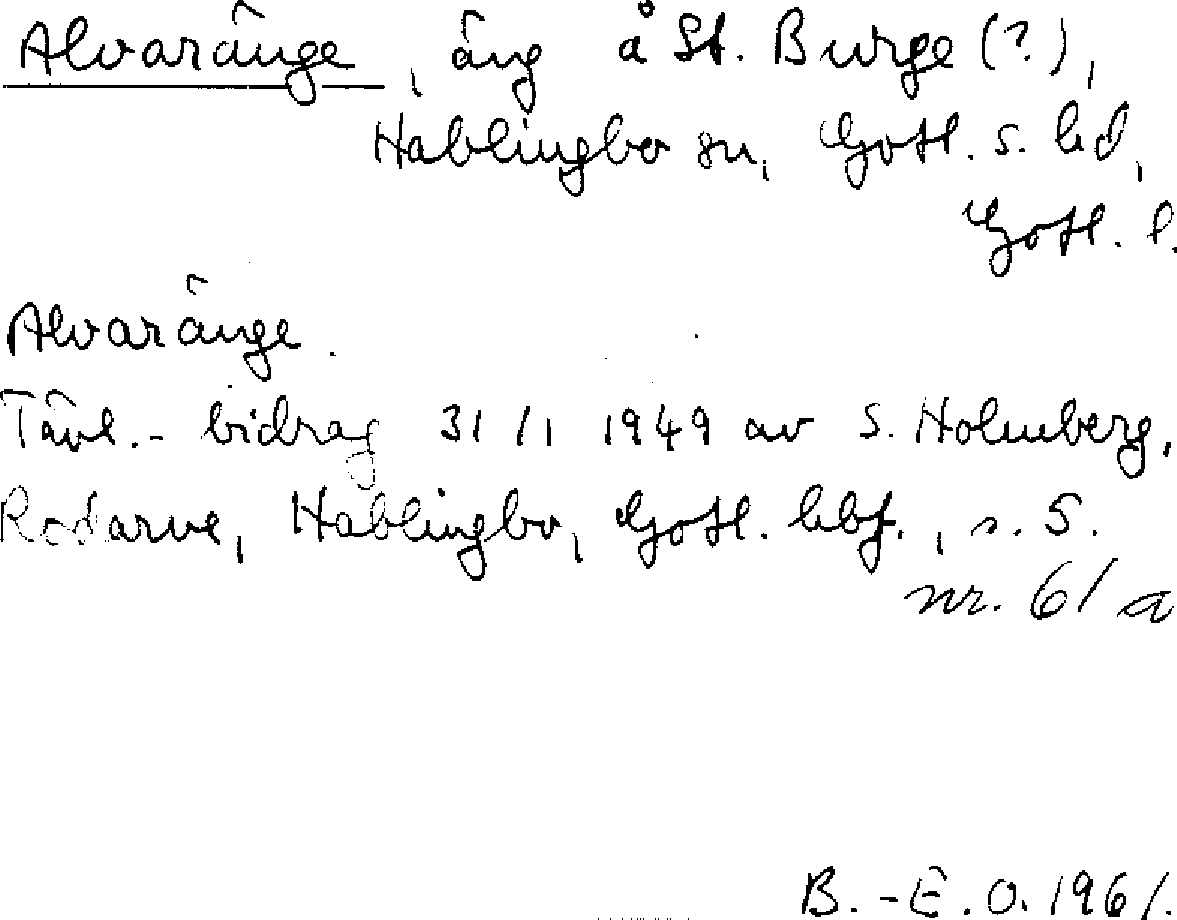 Alvaränge, äng å St. Burge (?),
Hablingbo sn, Gotl. s. hd,
Gotl. l.
Alvaränge.
Tävl.-bidrag 31/1 1949 av S. Holmberg,
Rodarve, Hablingbo, Gotl. hbf., s. 5.
nr. 61 a
B.-E. O. 1961.